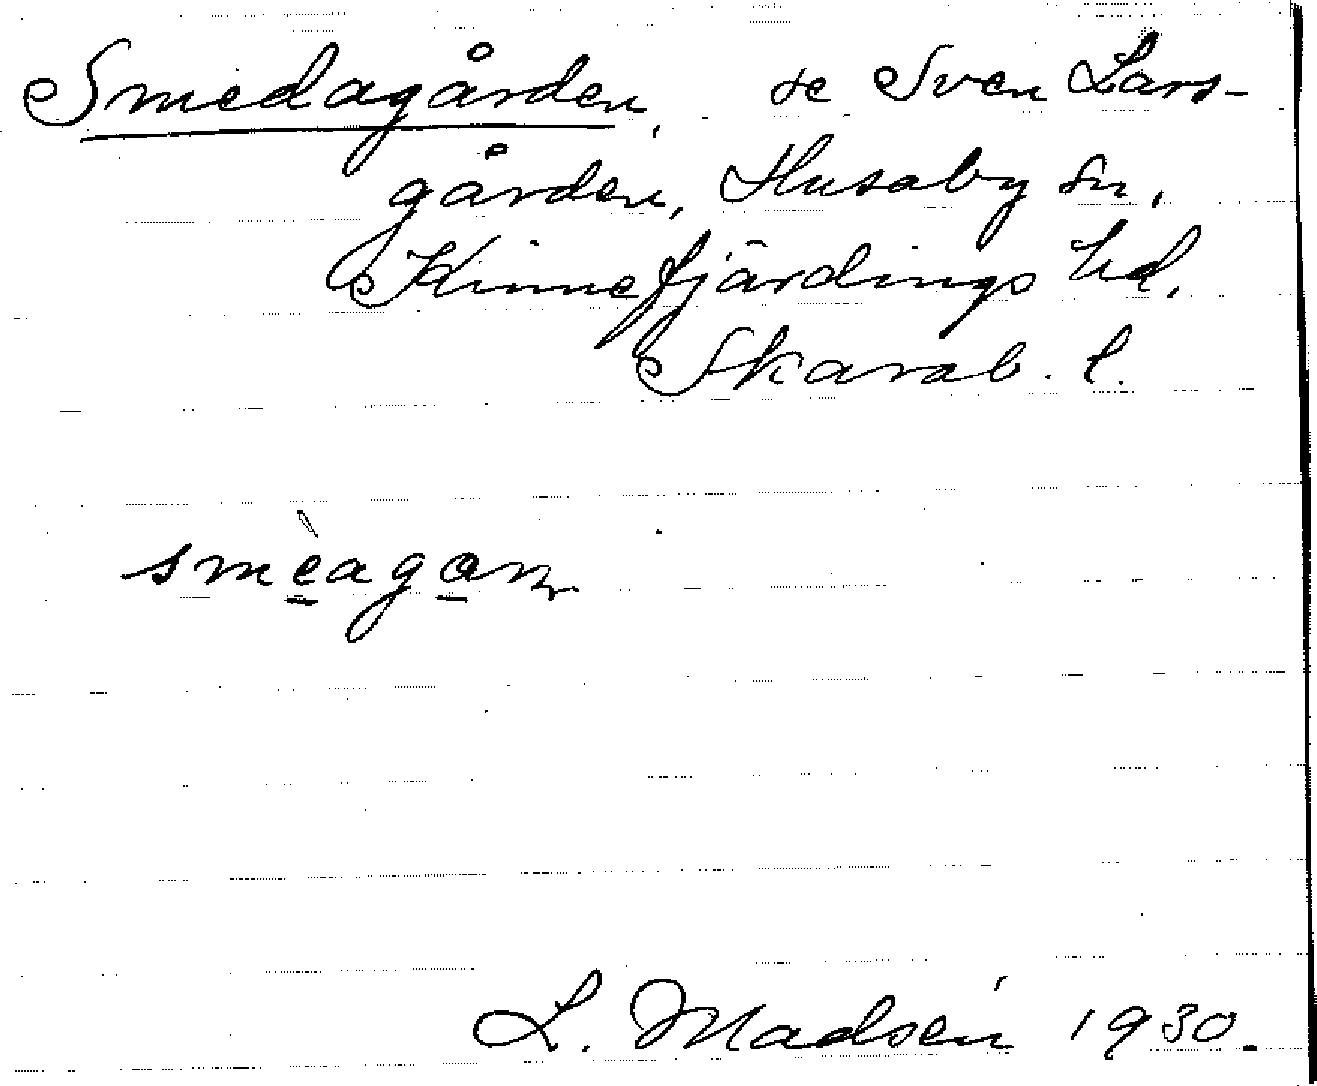 Smedagården, se Sven Lars-
gården, Husaby sn,
Kinnefjärdings hd,
Skarab. l.
smèagan
L. Madsén 1930.